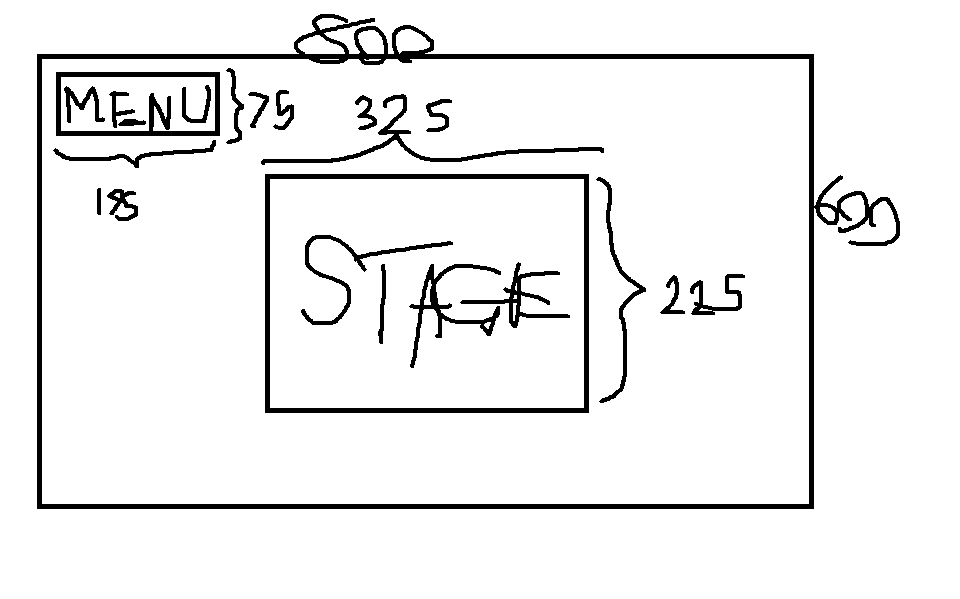 800
MENU
75
325
185
600
STAGE
225